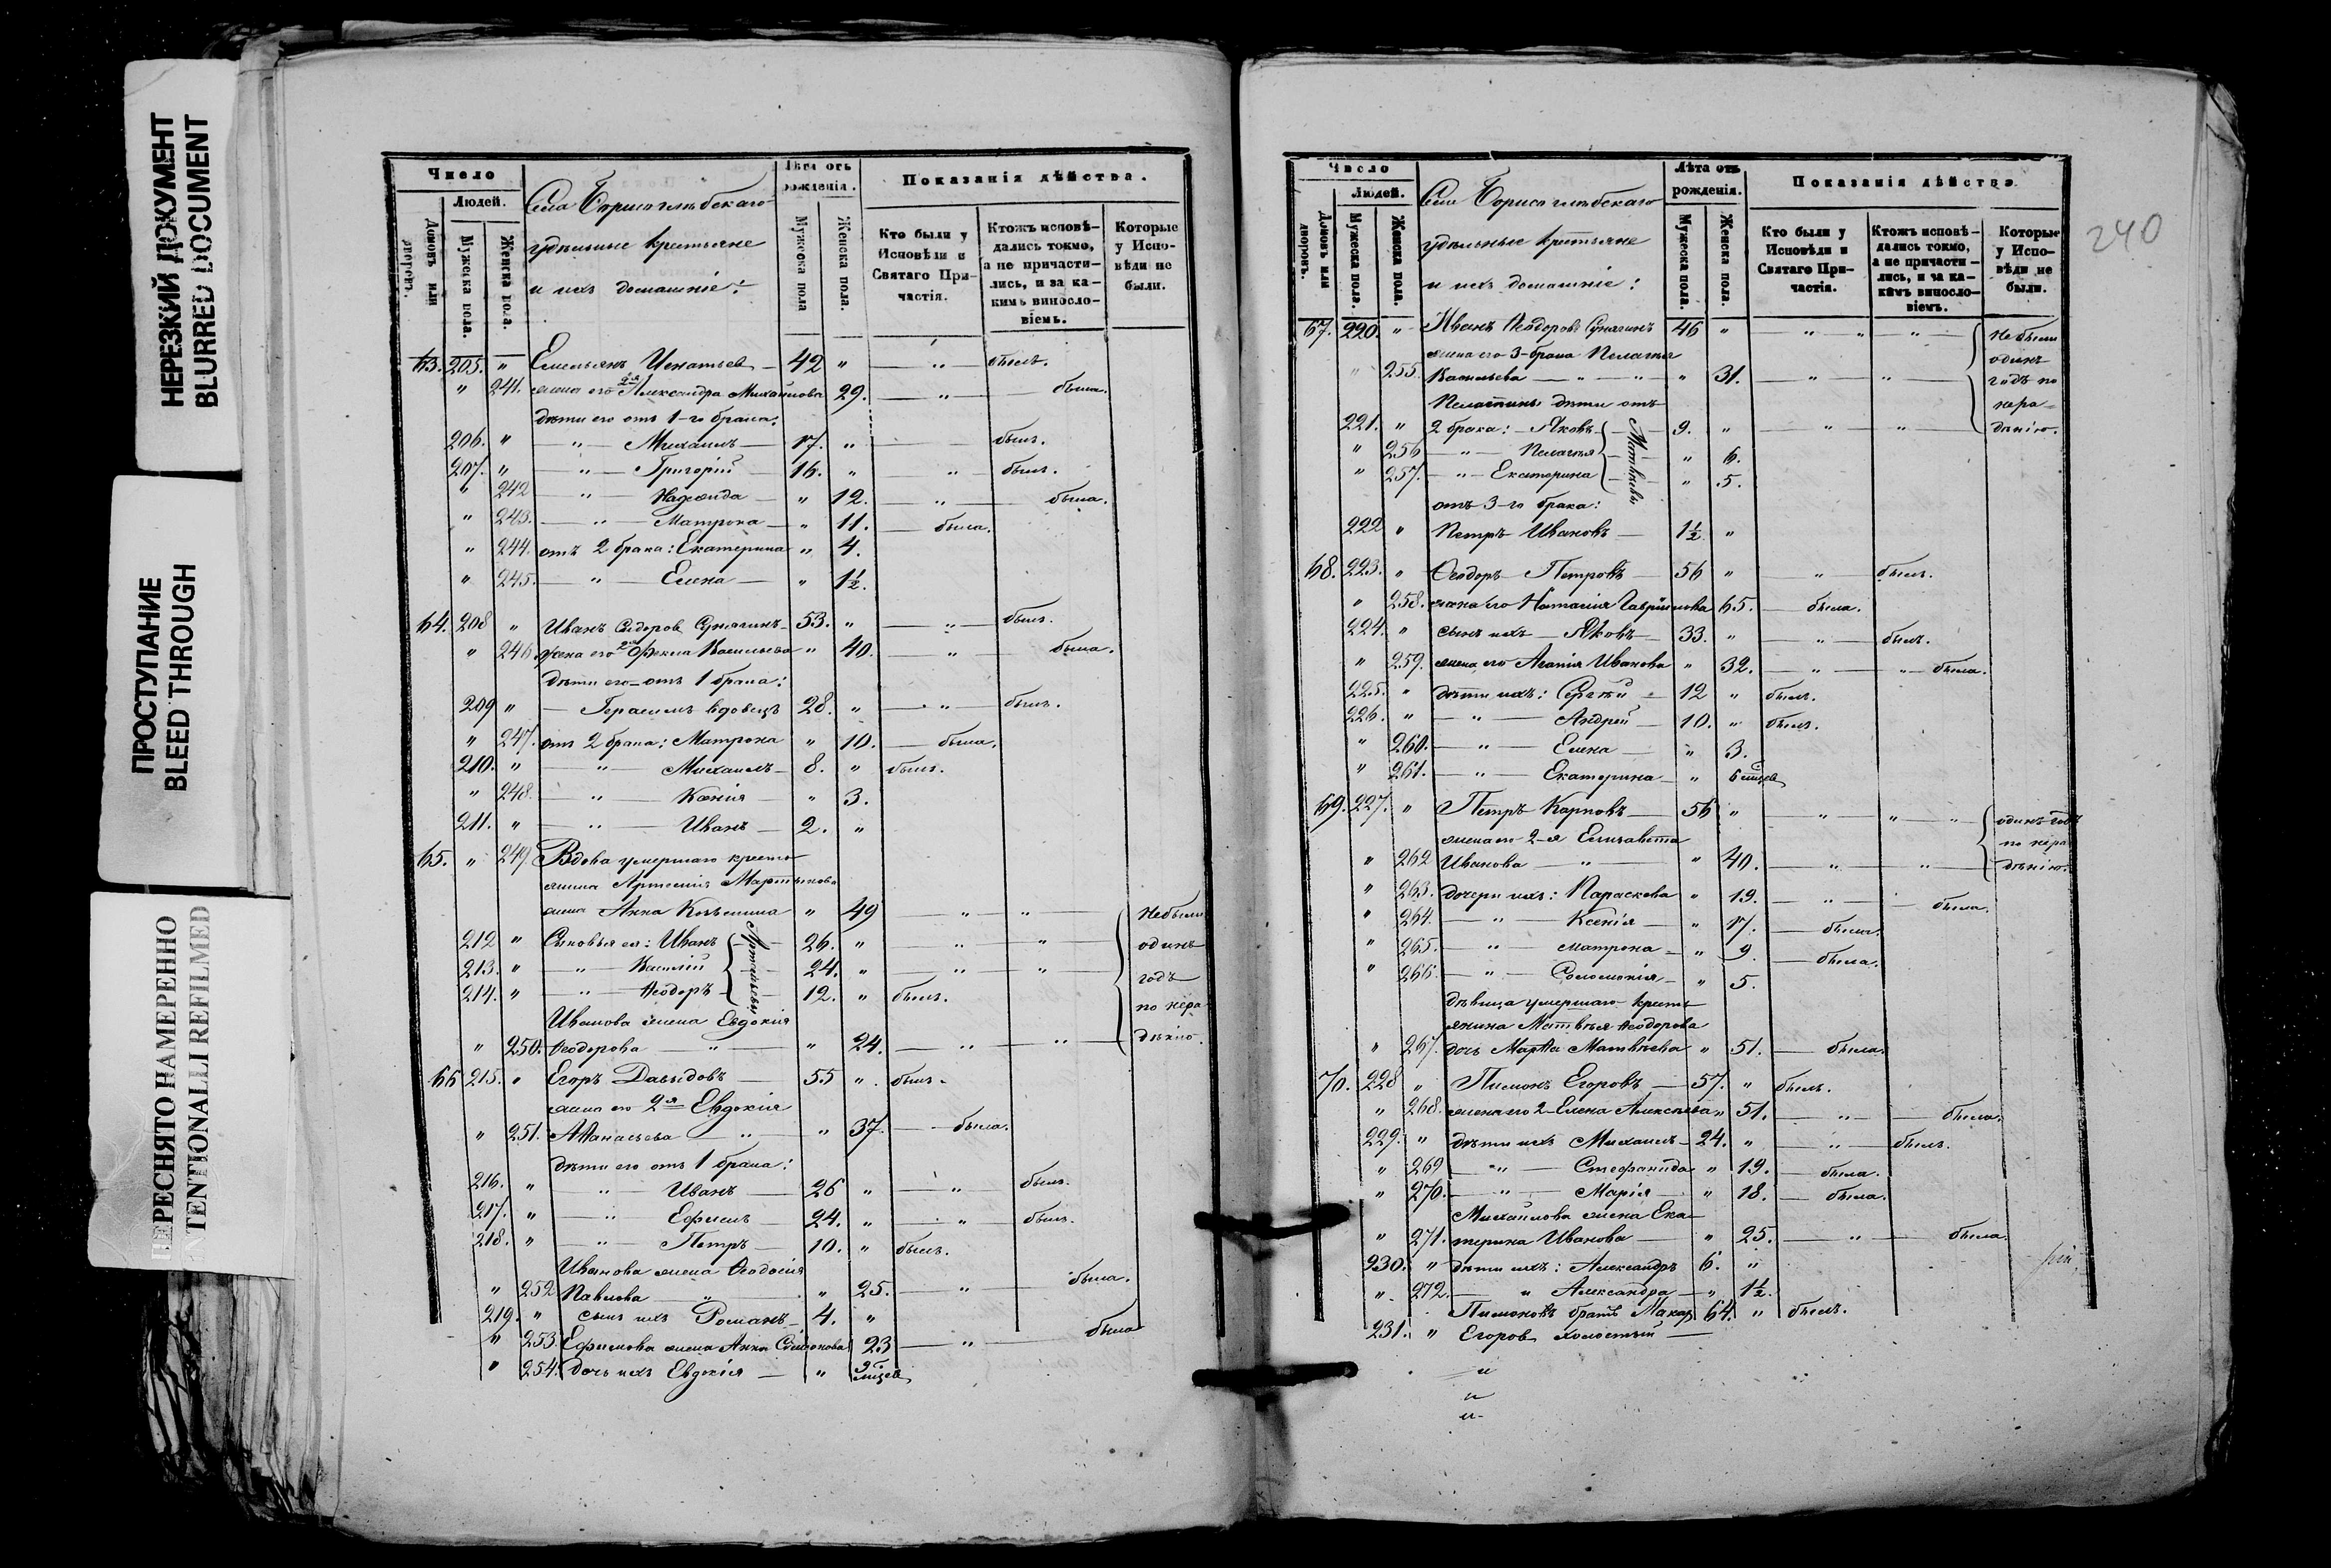 НЕРЕЗКИЙ ДОКУМЕНТ
BLURRED DOCUMENT
ПРОСТУПАНИЕ
BLEED THROUGH
ПЕРЕСНЯТО НАМЕРЕННО
INTENTIONALLI REFILMED
Число
Людей.
Домовъ или дворовъ.
Мужеска пола.
Женска пола.
Села Борисоглѣбскаго
удѣльные крестьяне
и ихъ домашніе:
Лѣта отъ рожденія.
Мужеска пола
Женска пола.
Показанія дѣйства.
Кто были у Исповѣди и Святаго Причастія.
Ктожъ исповѣдались токмо, а не причастились, и за какимъ винословіемъ.
Которые у Исповѣди не были.
63. 205. " Емельянъ Игнатьев 42 " " былъ.
" 241. жена его 2я Александра Михайлова 29. " была.
дѣти его отъ 1-го брака:
206. " " Михаилъ 17. " былъ.
207. " " Григорій 16. " " былъ.
" 242 " Надежда " 12. " была.
" 243. " Матрона " 11. была.
" 244. отъ 2 брака: Екатерина " 4.
" 245. " Елена " 1½.
64. 208 " Иванъ Сидоров 53. " " былъ.
" 246. жена его 2я Фекла Васильева " 40. " была.
дѣти его отъ 1 брака:
209 " Герасимъ вдовецъ 28. " " былъ.
" 247. отъ 2 брака: Матрона " 10. была.
210. " " Михаилъ 8. " былъ.
" 248. " Ксенія " 3.
211. " " Иванъ 2. "
65. " 249 Вдова умершаго кресть
янина Артемія Мартынова
жена Анна Козьмина " 49 " " Небыли
212 " Сыновья ея: Иванъ 26. " " " одинъ
213. " " Василій Артемьевы 24. " " " годъ
214. " " Ѳеодоръ 12. " былъ. по нера
Иванова жена Евдокія
" 250. Ѳеодорова " " 24. " " дѣнію.
66 215. " Егоръ Давыдовъ 55 " былъ.
жена его 2я Евдокія
" 251. Аѳанасьева " " 37. была.
дѣти его отъ 1 брака:
216. " " Иванъ 26 " " былъ.
217. " " Ефимъ 24. " " былъ.
218. " " Петръ 10. " былъ.
Иванова жена Ѳеодосія
" 252 Павлова " " 25. " была.
219. " сынъ ихъ Романъ 4. "
" 253. Ефимова жена Анна Симонова 23 " была
" 254. дочь ихъ Евдокія " 9 мцсев
240
Число
Людей.
Домовъ или дворовъ.
Мужеска пола.
Женска пола.
Села Борисоглѣбскаго
удѣльные крестьяне
и ихъ домашніе:
Лѣта отъ рожденія.
Мужеска пола.
Женска пола.
Показанія дѣйства.
Кто были у Исповѣди и Святаго Причастія.
Ктожъ исповѣдались токмо, а не причастились, и за какимъ винословіемъ.
Которые у Исповѣди не были.
67. 220. " Иванъ Ѳеодоровъ 46 " " " " Небыли
жена его 3-брака Пелагія одинъ
" 255. Васильева " " " 31. " " годъ по
Пелагіины дѣти отъ нера-
221. " 2 брака: Яковъ 9. " " " дѣнію.
" 256 " Пелагія Матвѣевы " 6.
" 257. " Екатерина " 5.
отъ 3-го брака:
222 " Петръ Ивановъ 1½ "
68. 223. " Ѳеодоръ Петровъ 56 " " былъ.
" 258. жена его Наталія Гавриилова 65. была.
224. " сынъ ихъ Яковъ 33. " " былъ.
" 259. жена его Агапія Иванова " 32. " " была.
225. " дѣти ихъ: Сергѣй 12 " былъ.
226. " " Андрей 10. " былъ.
" 260. " Елена " 3.
" 261. " Екатерина " 6 мцсев
69. 227. " Петръ Карповъ 56 " " " " одинъ годъ
жена его 2-я Елизавета по нера
" 262 Иванова " " 40. " " дѣнію.
" 263. дочери ихъ: Параскева " 19. " была.
" 264. " Ксенія " 17. была.
" 265. " Матрона " 9. была.
" 266. " Соломонія " 5.
дѣвица умершаго кресть
янина Матвѣя Ѳеодорова
" 267. дочь Марѳа Матвѣева " 51. была.
70. 228 " Пимонъ Егоровъ 57. " былъ.
" 268. жена его 2-Елена Алексѣева " 51. " была.
229. " дѣти ихъ Михаилъ 24. " " былъ.
" 269 " Стефанида " 19. была.
" 270. " Марія " 18. была.
Михайлова жена Ека
" 271. терина Иванова " 25. " была.
230. " дѣти ихъ: Александръ 6. "
" 272. " Александра " 1½.
Пимоновъ братъ Макар 64. " былъ.
231. " Егоров холостый